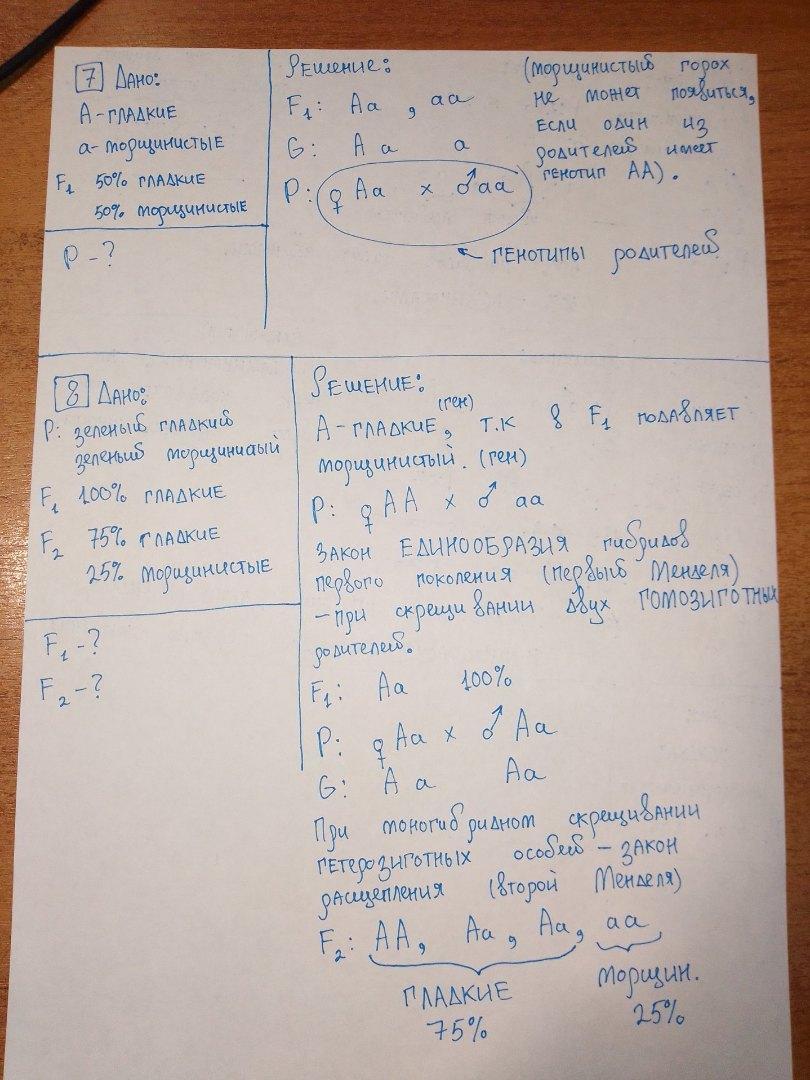 7 Дано:
А-гладкие
а-морщинистые
F₁ 50% гладкие
50% морщинистые
P-?
Решение:
F₁: Аа, аа
G: А а а
P: ♀ Аа х ♂ аа
← генотипы родителей
(морщинистый горох
не может появиться,
если один из
родителей имеет
генотип АА).
8 Дано:
P: зеленый гладкий
зеленый морщинистый
F₁ 100% гладкие
F₂ 75% гладкие
25% морщинистые
F₁-?
F₂-?
Решение:
А-гладкие (ген), т.к в F₁ подавляет
морщинистый. (ген)
P: ♀ АА х ♂ аа
Закон ЕДИНООБРАЗИЯ гибридов
первого поколения (первый Менделя)
-при скрещивании двух ГОМОЗИГОТНЫХ
родителей.
F₁: Аа 100%
P: ♀ Аа х ♂ Аа
G: А а Аа
При моногибридном скрещивании
гетерозиготных особей - закон
расщепления (второй Менделя)
F₂: АА, Аа, Аа, аа
гладкие
75%
морщин.
25%